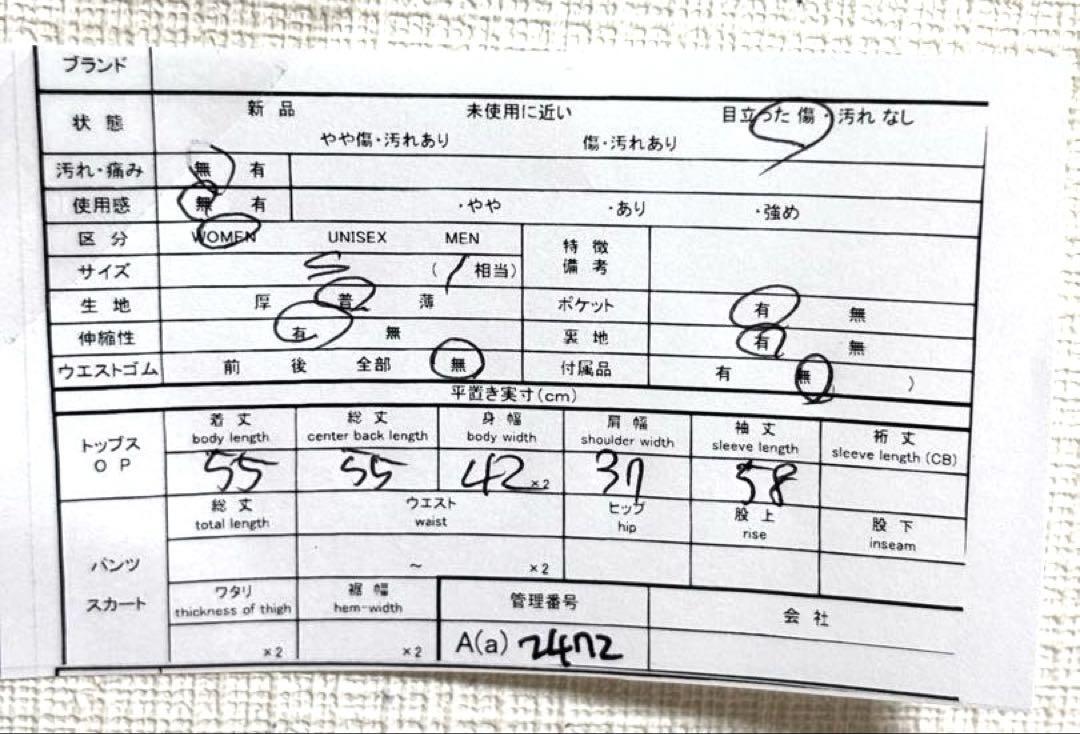 ブランド
状態 新品 未使用に近い 目立った傷・汚れなし
やや傷・汚れあり 傷・汚れあり
汚れ・痛み 無 有
使用感 無 有 ・やや ・あり ・強め
区分 WOMEN UNISEX MEN 特徴備考
サイズ S ( / 相当)
生地 厚 普 薄 ポケット 有 無
伸縮性 有 無 裏地 有 無
ウエストゴム 前 後 全部 無 付属品 有 無 )
平置き実寸(cm)
トップス OP 着丈 総丈 身幅 肩幅 袖丈 裄丈
body length center back length body width shoulder width sleeve length sleeve length (CB)
55 55 42 ×2 37 58
パンツ スカート 総丈 ウエスト ヒップ 股上 股下
total length waist hip rise inseam
~ ×2
ワタリ 裾幅 管理番号 会社
thickness of thigh hem-width
×2 ×2 A(a) 2472